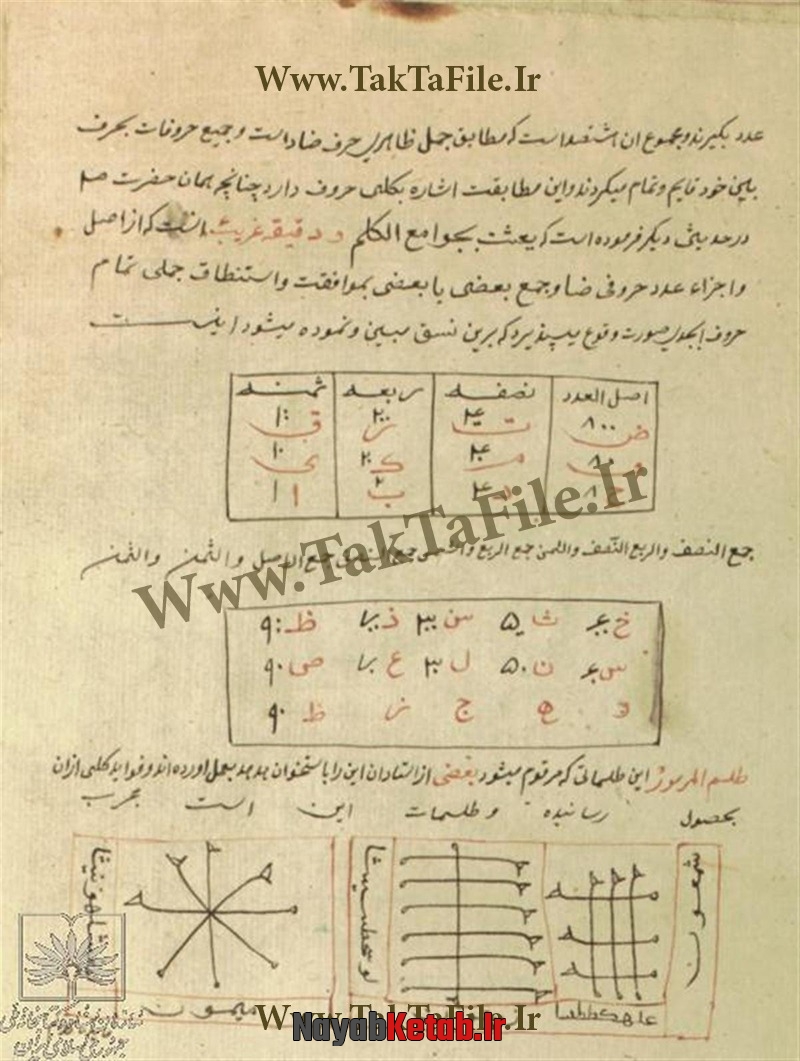 Www.TakTaFile.Ir
عدد بکیرند و مجموع ان هشتصد است که مطابق جمل ظاهری حرف ضاد است و جمیع حروفات بحرف
خود قایم و تمام میکردند و این مطابقت اشاره بکلی حروف دارد چنانچه همان حضرت صلم
در حدیثی دیکر فرموده است که بعثت بجوامع الکلم و دقیقه غریب انست که از اصل
و اجزاء عدد حروفی ضا و جمع بعضی با بعضی بموافقت و استنطاق جملی تمام
حروف ابجدی صورت وقوع میپذیرد که برین نسق مبین و نموده میشود اینست
اصل العدد نصفه ربعه ثمنه
ض ۸۰۰ ت ۴۰۰ ر ۲۰۰ ق ۱۰۰
ف ۸۰ م ۴۰ ک ۲۰ ی ۱۰
ح ۸ د ۴ ب ۲ ا ۱
جمع النصف والربع النصف والثمن جمع الربع جمع الاصل والثمن والثمن
Www.TakTaFile.Ir
خ ۶۰۰ ث ۵۰۰ ش ۳۰۰ ذ ۷۰۰ ظ ۹۰۰
س ۶۰ ن ۵۰ ل ۳۰ ع ۷۰ ص ۹۰
و ه ج ز ظ ۹۰
طلسم المرموز این طلسماتی که مرقوم میشود بعضی از استادان این را باستخوان هدهد بعمل اورده اند و فواید کلی ازان
بحصول رسانیده و طلسمات این است مجرب
شمعون
میمون
Www.TakTaFile.Ir
NayabKetab.Ir
سازمان اسناد و کتابخانه ملی
جمهوری اسلامی ایران